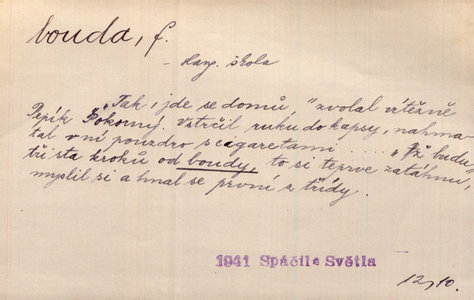 bouda, f.
- Hanl. škola
"Tak, jde se domů," zvolal vítězně
Pepík Pokorný. Vstrčil ruku do kapsy, nahma-
tal v ní pouzdro s cigaretami .... "Až budu
tři sta kroků od boudy, to si teprve zatáhnu,
myslil si a hnal se první z třídy.
1941 Spáčil: Světla
12, 10.